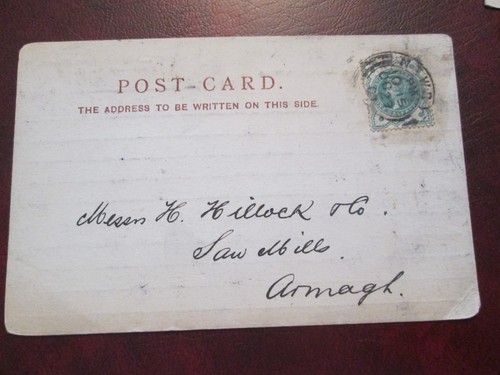 POST-CARD.
THE ADDRESS TO BE WRITTEN ON THIS SIDE.
Messrs H. Hillock & Co.
Saw Mills.
Armagh.